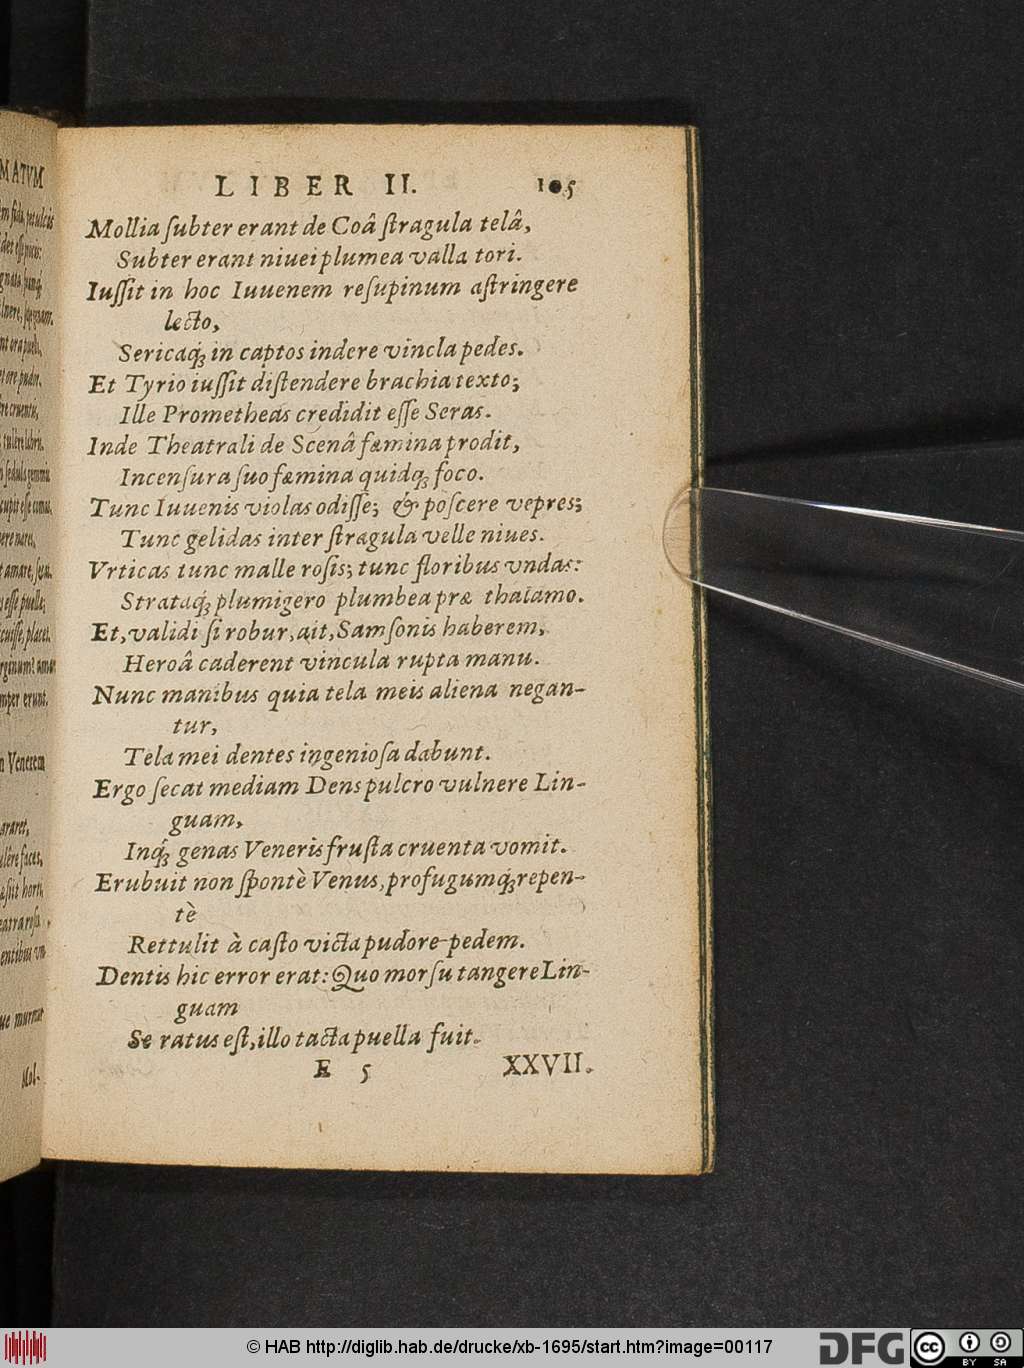 LIBER II. 105
Mollia ſubter erant de Coâ ſtragula telâ,
Subter erant niuei plumea valla tori.
Iuſſit in hoc Iuuenem reſupinum aſtringere
lecto,
Sericaq́; in captos indere vincla pedes.
Et Tyrio iuſſit diſtendere brachia texto;
Ille Prometheas credidit eſſe Seras.
Inde Theatrali de Scenâ fæmina prodit,
Incenſura ſuo fæmina quidq; foco.
Tunc Iuuenis violas odiſſe; & poſcere vepres;
Tunc gelidas inter ſtragula velle niues.
Vrticas tunc malle roſis; tunc floribus vndas:
Strataq́; plumigero plumbea præ thalamo.
Et, validi ſi robur, ait, Samſonis haberem,
Heroâ caderent vincula rupta manu.
Nunc manibus quia tela meis aliena negan-
tur,
Tela mei dentes ingenioſa dabunt.
Ergo ſecat mediam Dens pulcro vulnere Lin-
guam,
Inq́; genas Veneris fruſta cruenta vomit.
Erubuit non ſpontè Venus, profugumq́; repen-
tè
Rettulit à caſto victa pudore pedem.
Dentis hic error erat: Quo morſu tangere Lin-
guam
Se ratus eſt, illo tacta puella fuit.
E 5 XXVII.
MATVM
n Venerem
araret,
Mol-
© HAB http://diglib.hab.de/drucke/xb-1695/start.htm?image=00117
DFG
cc
BY SA